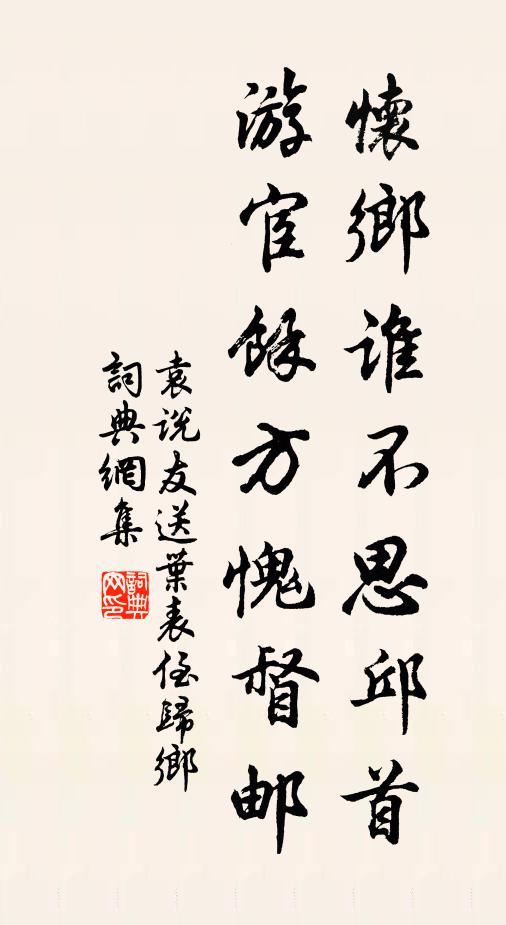 懷鄉誰不思邱首
游宦餘方愧督邮
袁说友送葉表侄歸鄉
詞典網集
詞典网印